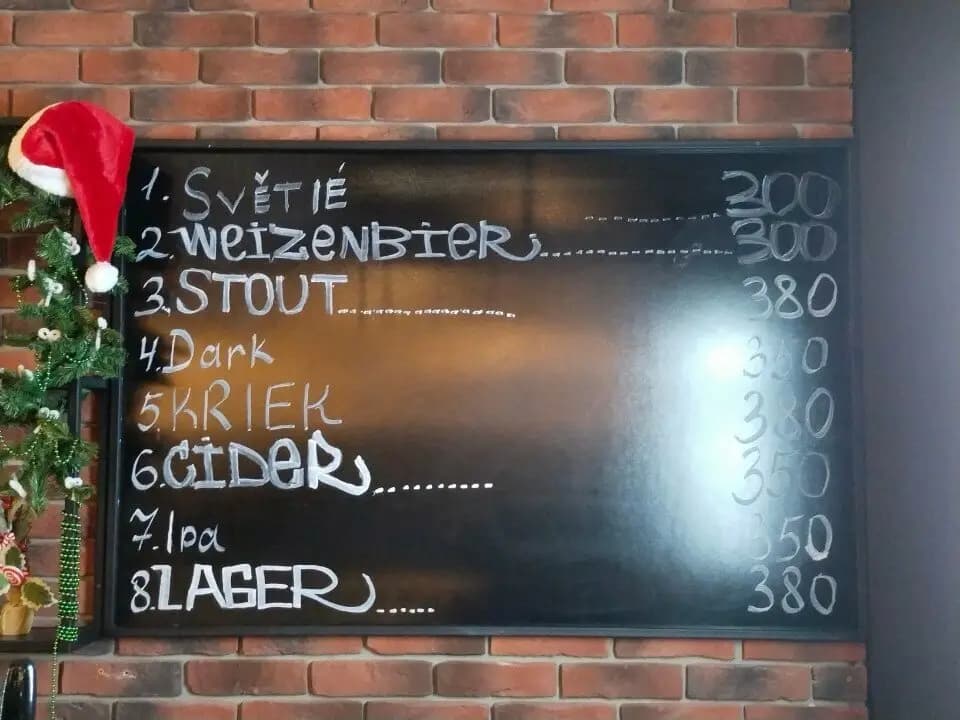 1. SVĚTIÉ ............ 300
2. WeizenBier ............... 300
3. STOUT ............... 380
4. Dark 350
5. KRIEK 380
6. CIDER ......... 350
7. Ipa 350
8. LAGER ..... 380